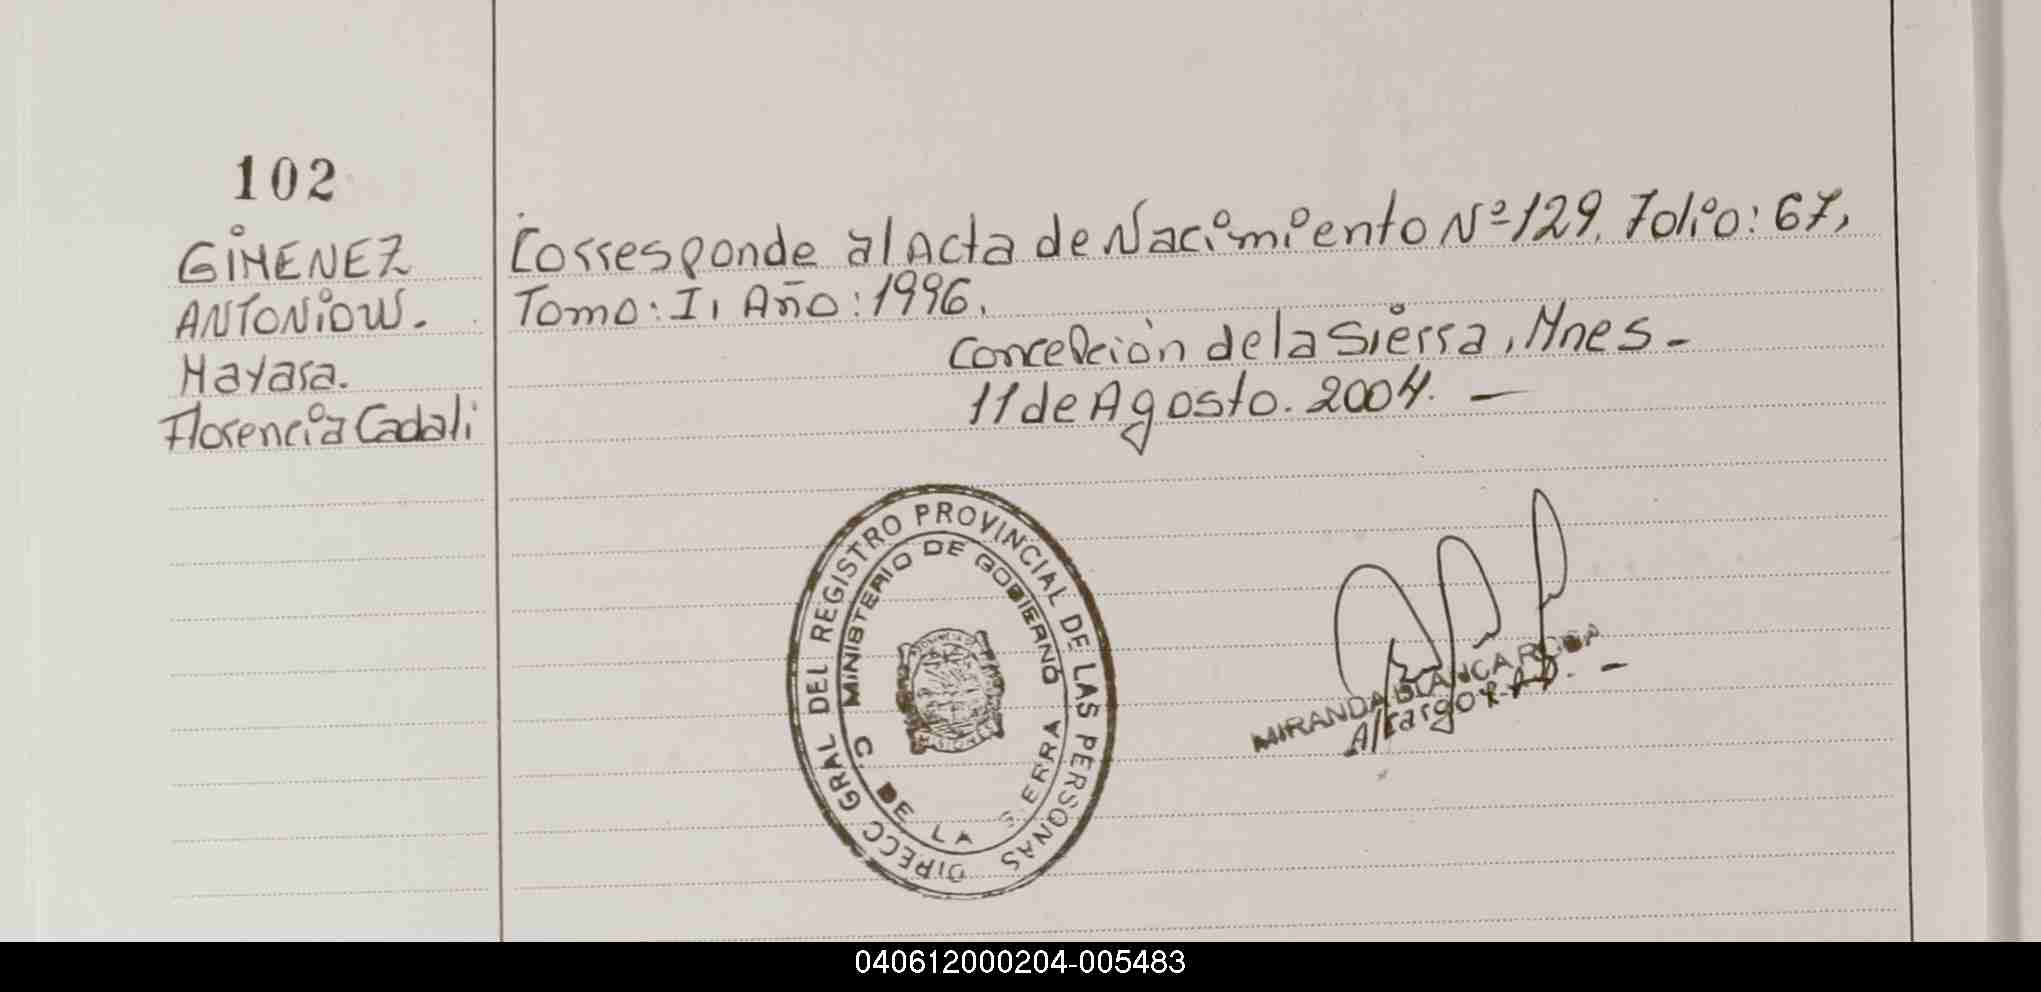 102
GIMENEZ
ANTONIOW.
Mayara.
Florencia Cadali
Corresponde al Acta de Nacimiento Nº 129, Folio: 67,
Tomo: I, Año: 1996.
Concepción de la Sierra, Mnes.-
11 de Agosto. 2004. —
DIRECC GRAL DEL REGISTRO PROVINCIAL DE LAS PERSONAS
MINISTERIO DE GOBIERNO
C DE LA SIERRA
MIRANDA BLANCA ROSA
A/cargo R.P.P. -
040612000204-005483